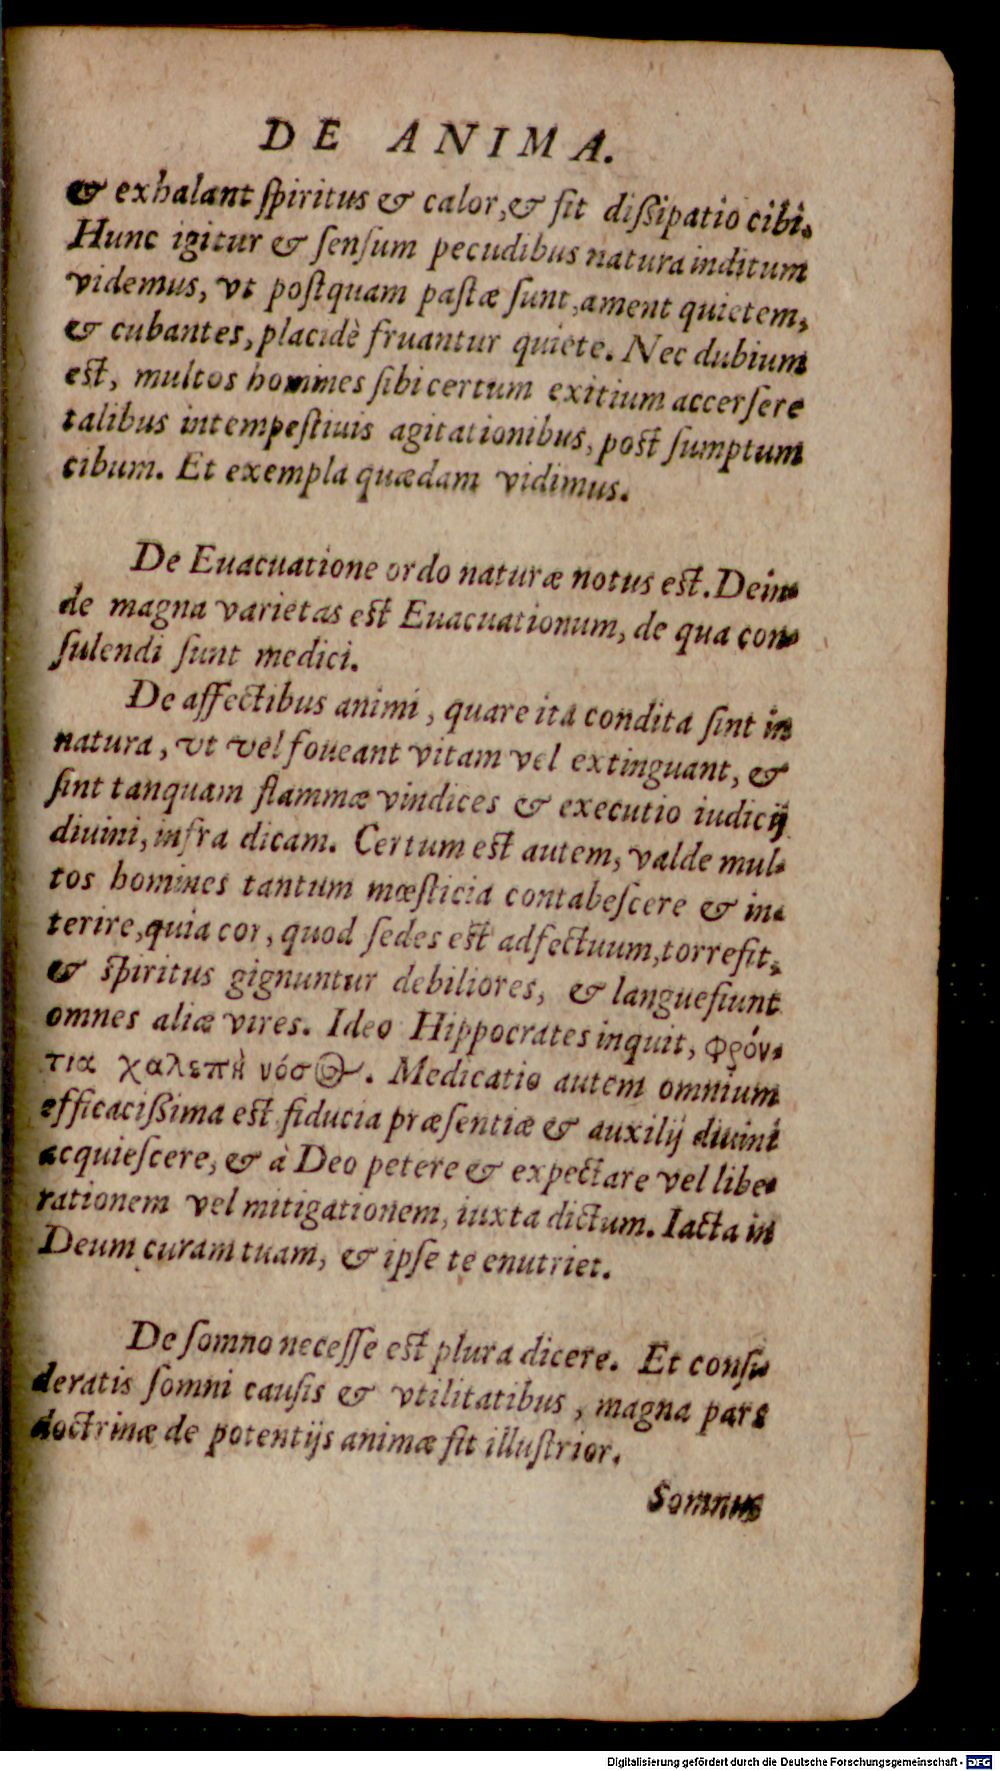 DE ANIMA.
& exhalant ſpiritus & calor, & fit diſſipatio cibi.
Hunc igitur & ſenſum pecudibus natura inditum
videmus, vt poſtquam paſtæ ſunt, ament quietem,
& cubantes, placidè fruantur quiete. Nec dubium
eſt, multos homines ſibi certum exitium accerſere
talibus intempeſtiuis agitationibus, poſt ſumptum
cibum. Et exempla quædam vidimus.
De Euacuatione ordo naturæ notus eſt. Dein-
de magna varietas eſt Euacuationum, de qua con-
ſulendi ſunt medici.
De affectibus animi, quare ita condita ſint in
natura, vt vel foueant vitam vel extinguant, &
ſint tanquam flammæ vindices & executio iudicij
diuini, infra dicam. Certum eſt autem, valde mul-
tos homines tantum mœſticia contabeſcere & in-
terire, quia cor, quod ſedes eſt adfectuum, torrefit,
& ſpiritus gignuntur debiliores, & languefiunt
omnes aliæ vires. Ideo Hippocrates inquit, φρόν-
τια χαλεπὴ νόσος. Medicatio autem omnium
efficaciſſima eſt fiducia præſentiæ & auxilij diuini
acquieſcere, & à Deo petere & expectare vel libe-
rationem vel mitigationem, iuxta dictum. Iacta in
Deum curam tuam, & ipſe te enutriet.
De ſomno neceſſe eſt plura dicere. Et conſi-
deratis ſomni cauſis & vtilitatibus, magna pars
doctrinæ de potentijs animæ fit illuſtrior.
Somnus
Digitalisierung gefördert durch die Deutsche Forschungsgemeinschaft - DFG